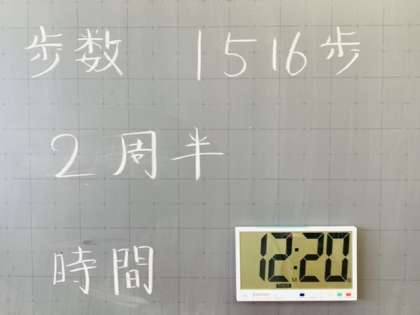 歩数 1516歩
2周半
時間 12:20